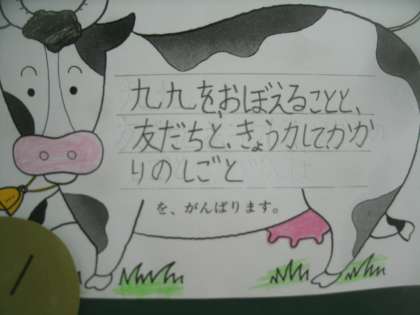 九九を、おぼえることと、
友だちと、きょう力してかか
りのしごと
を、がんばります。